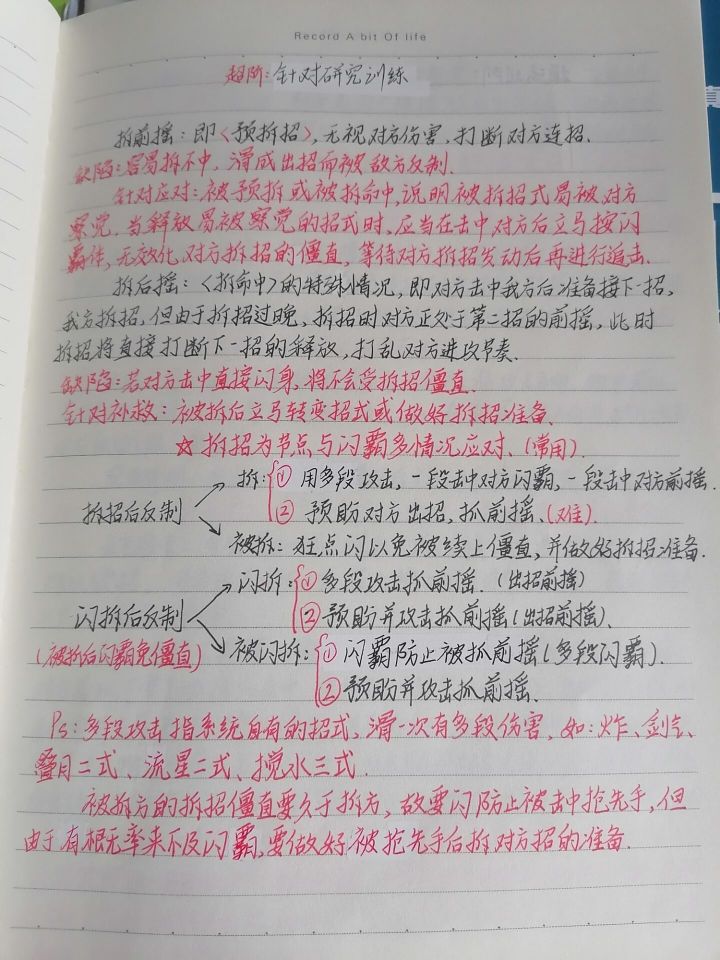 Record A bit Of life
超阶:针对研究训练
拆前摇:即〈预拆招〉,无视对方伤害,打断对方连招.
缺陷:容易拆不中,滑成出招而被敌方反制.
针对应对:被预拆或被拆命中,说明被拆招式易被对方
察觉,当释放易被察觉的招式时,应当在击中对方后立马按闪
霸体,无效化对方拆招的僵直,等待对方拆招发动后再进行追击.
拆后摇:〈拆命中〉的特殊情况,即对方击中我方后准备接下一招,
我方拆招,但由于拆招过晚,拆招时对方正处于第二招的前摇,此时
拆招将直接打断下一招的释放,打乱对方进攻节奏.
缺陷:若对方击中直接闪身,将不会受拆招僵直.
针对补救:被拆后立马转变招式或做好拆招准备.
☆拆招为节点与闪霸多情况应对、(常用).
拆:①用多段攻击,一段击中对方闪霸,一段击中对方前摇.
拆招后反制
②预盼对方出招,抓前摇、(难).
被拆:狂点闪以免被续上僵直,并做好拆招准备.
闪拆:①多段攻击抓前摇.(出招前摇)
闪拆后反制
②预盼并攻击抓前摇(出招前摇).
(被拆后闪霸免僵直)
被闪拆:①闪霸防止被抓前摇(多段闪霸).
②预盼并攻击抓前摇.
Ps:多段攻击指系统自有的招式,滑一次有多段伤害,如:炸、剑气、
叠月二式、流星二式、搅水三式.
被拆方的拆招僵直要久于拆方,故要闪防止被击中抢先手,但
由于有根无率来不及闪霸,要做好被抢先手后拆对方招的准备.